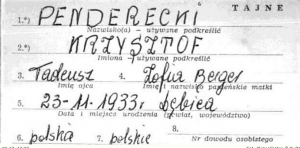 TAJNE
1.*) PENDERECKI
Nazwisko(a) - używane podkreślić
2.*) KRZYSZTOF
Imiona - używane podkreślić
3. Tadeusz 4. Zofia Berger
Imię ojca Imię i nazwisko panieńskie matki
5. 23-11-1933, Dębica
Data i miejsce urodzenia (powiat, województwo)
6. polska 7. polskie 8.
Nr dowodu osobistego